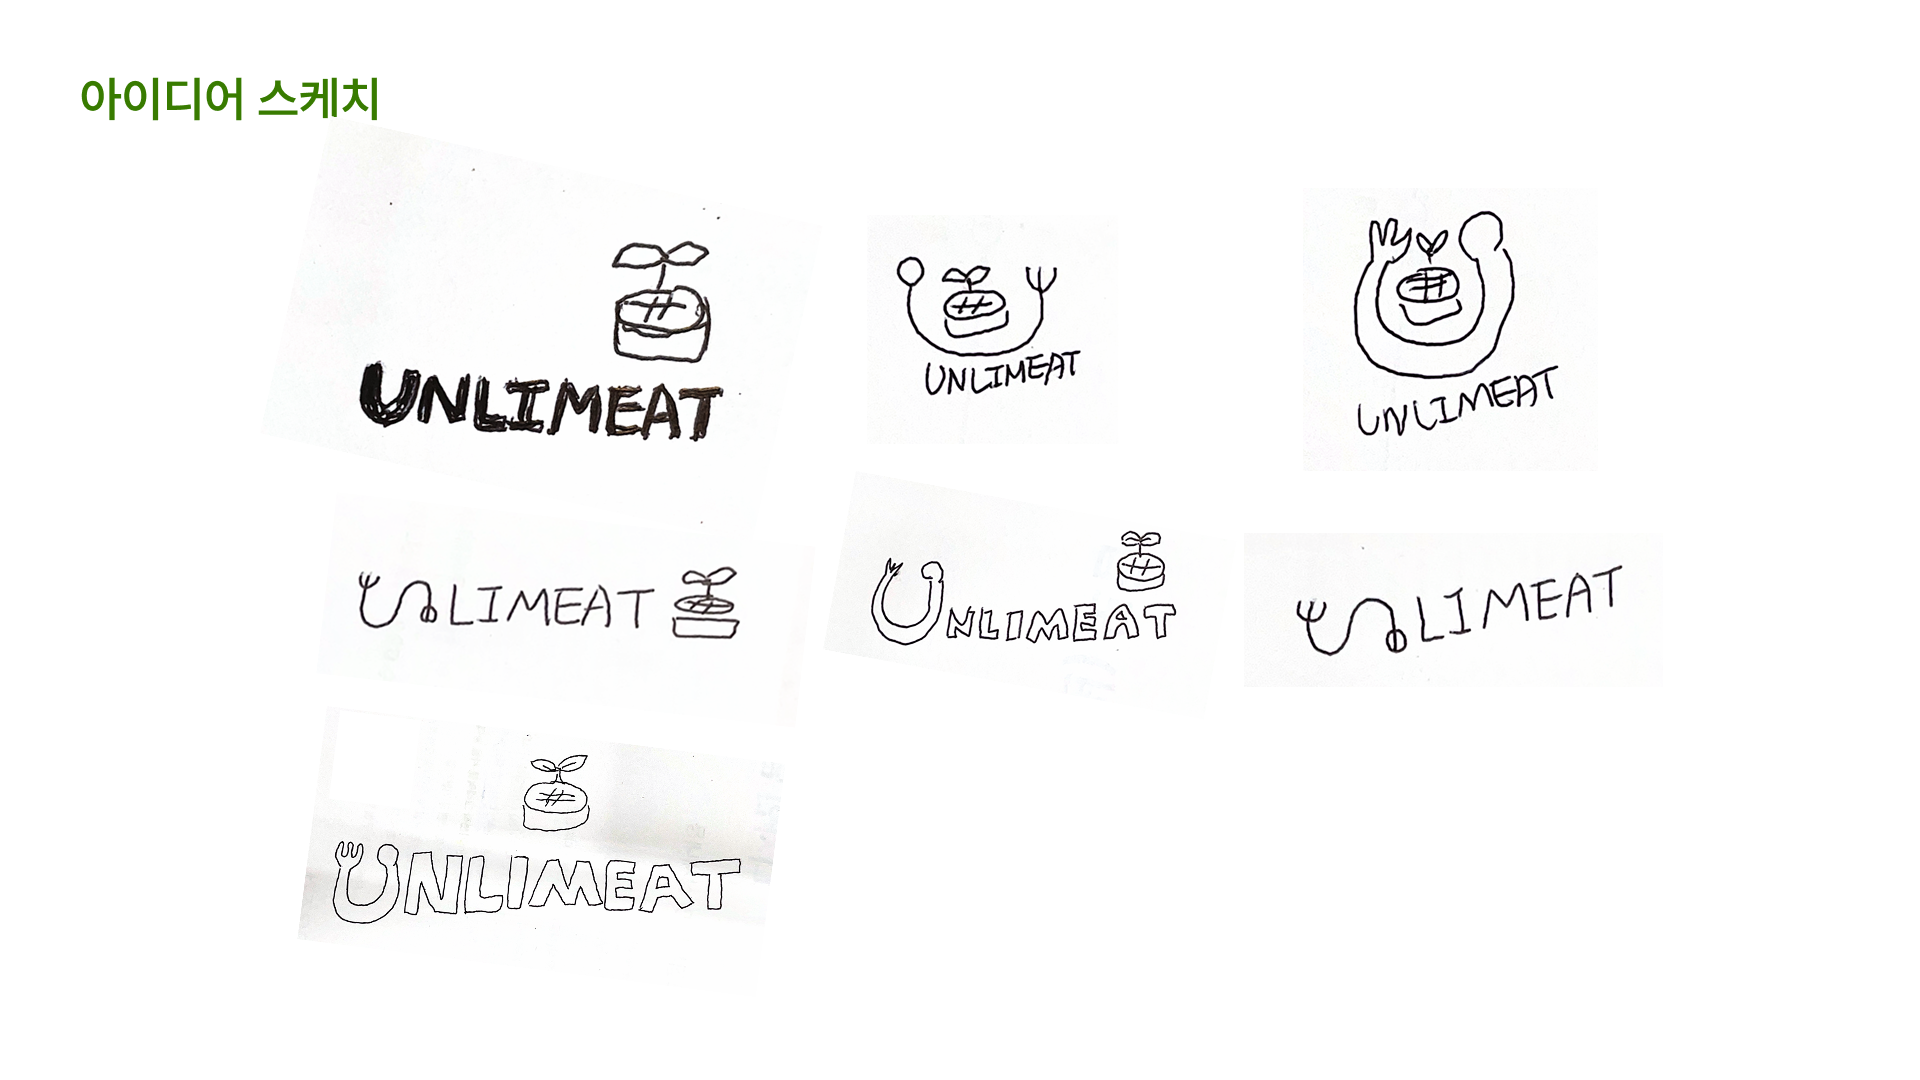 아이디어 스케치
UNLIMEAT
UNLIMEAT
UNLIMEAT
UNLIMEAT
UNLIMEAT
UNLIMEAT
UNLIMEAT